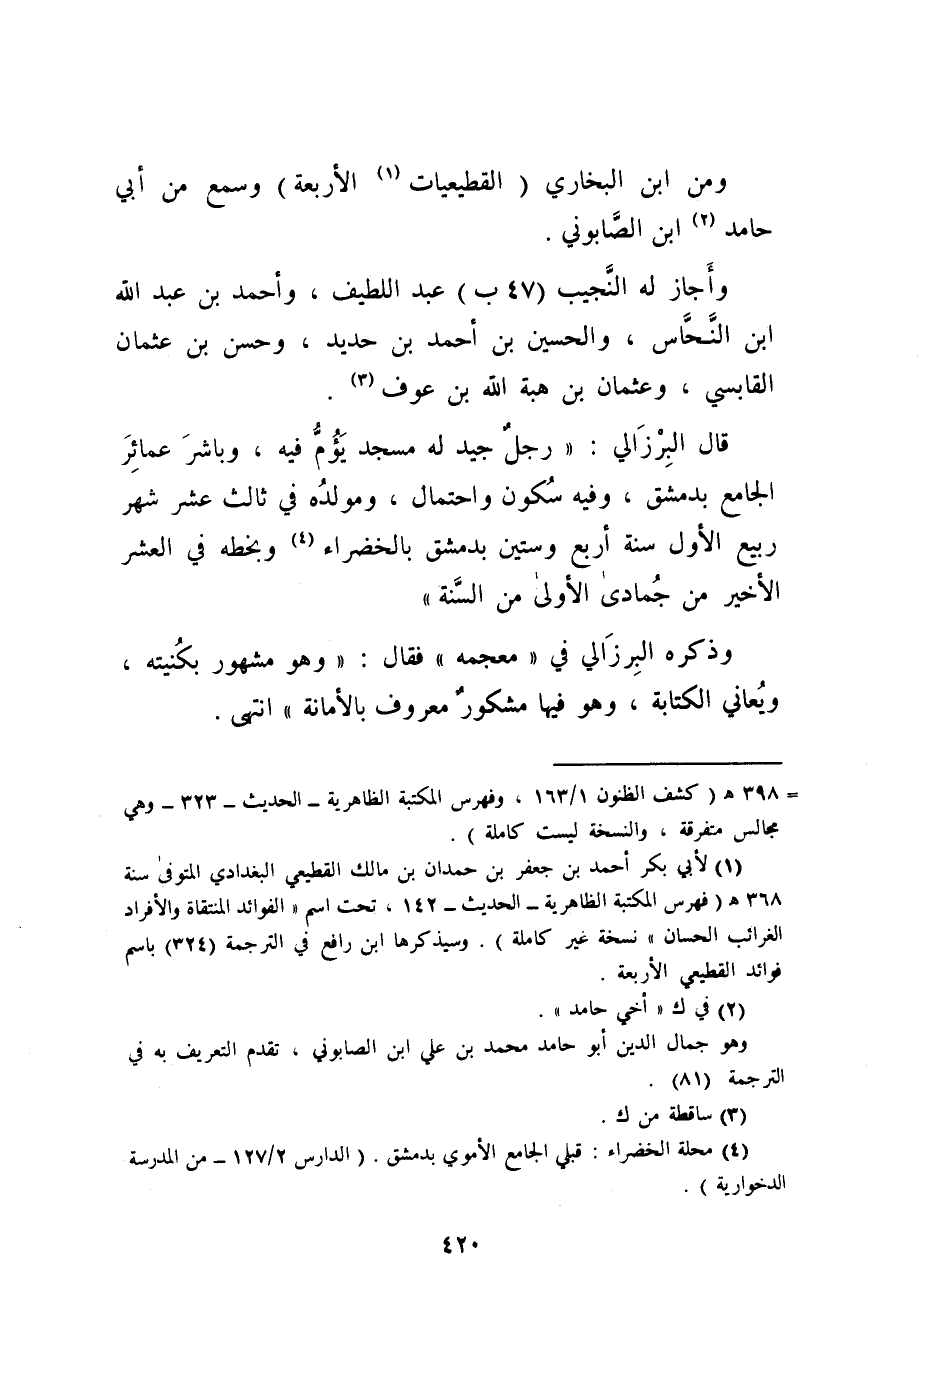 ومن ابن البخاري ( القطيعيات (١) الأربعة ) وسمع من أبي
حامد (٢) ابن الصَّابوني .
وأَجاز له النَّجيب (٤٧ ب ) عبد اللطيف ، وأحمد بن عبد الله
ابن النَّحَّاس ، والحسين بن أحمد بن حديد ، وحسن بن عثمان
القابسي ، وعثمان بن هبة الله بن عوف (٣) .
قال البِرْزَالي : « رجلٌ جيد له مسجد يَؤُمُّ فيه ، وباشرَ عمائِرَ
الجامع بدمشق ، وفيه سُكون واحتمال ، ومولدُه في ثالث عشر شهر
ربيع الأول سنة أربع وستين بدمشق بالخضراء (٤) وبخطه في العشر
الأخير من جُمادىٰ الأولىٰ من السَّنة »
وذكره البِرزَالي في « معجمه » فقال : « وهو مشهور بكُنيته ،
ويُعاني الكتابة ، وهو فيها مشكورٌ معروف بالأمانة » انتهى .
= ٣٩٨ ه ( كشف الظنون ١٦٣/١ ، وفهرس المكتبة الظاهرية ــ الحديث ــ ٣٢٣ ــ وهي
مجالس متفرقة ، والنسخة ليست كاملة ) .
(١) لأبي بكر أحمد بن جعفر بن حمدان بن مالك القطيعي البغدادي المتوفىٰ سنة
٣٦٨ ه ( فهرس المكتبة الظاهرية ــ الحديث ــ ١٤٢ ، تحت اسم « الفوائد المنتقاة والأفراد
الغرائب الحسان » نسخة غير كاملة ) . وسيذكرها ابن رافع في الترجمة (٣٢٤) باسم
فوائد القطيعي الأربعة .
(٢) في ك « أخي حامد » .
وهو جمال الدين أبو حامد محمد بن علي ابن الصابوني ، تقدم التعريف به في
الترجمة (٨١) .
(٣) ساقطة من ك .
(٤) محلة الخضراء : قبلي الجامع الأموي بدمشق . ( الدارس ١٢٧/٢ ــ من المدرسة
الدخوارية ) .
٤٢٠